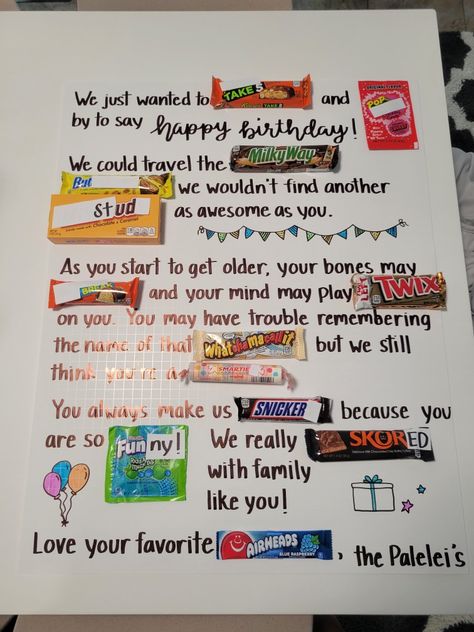 We just wanted to TAKE 5 and ORIGINAL FLAVOR POP
by to say happy birthday!
We could travel the MilkyWay
But we wouldn't find another
stud as awesome as you.
As you start to get older, your bones may
BREAK and your mind may play TWIX
on you. You may have trouble remembering
the name of that Whatchamacallit but we still
think you're a SMARTIE
You always make us SNICKER because you
are so Funny! We really SKORED
with family
like you!
Love your favorite AIRHEADS BLUE RASPBERRY, the Palelei's